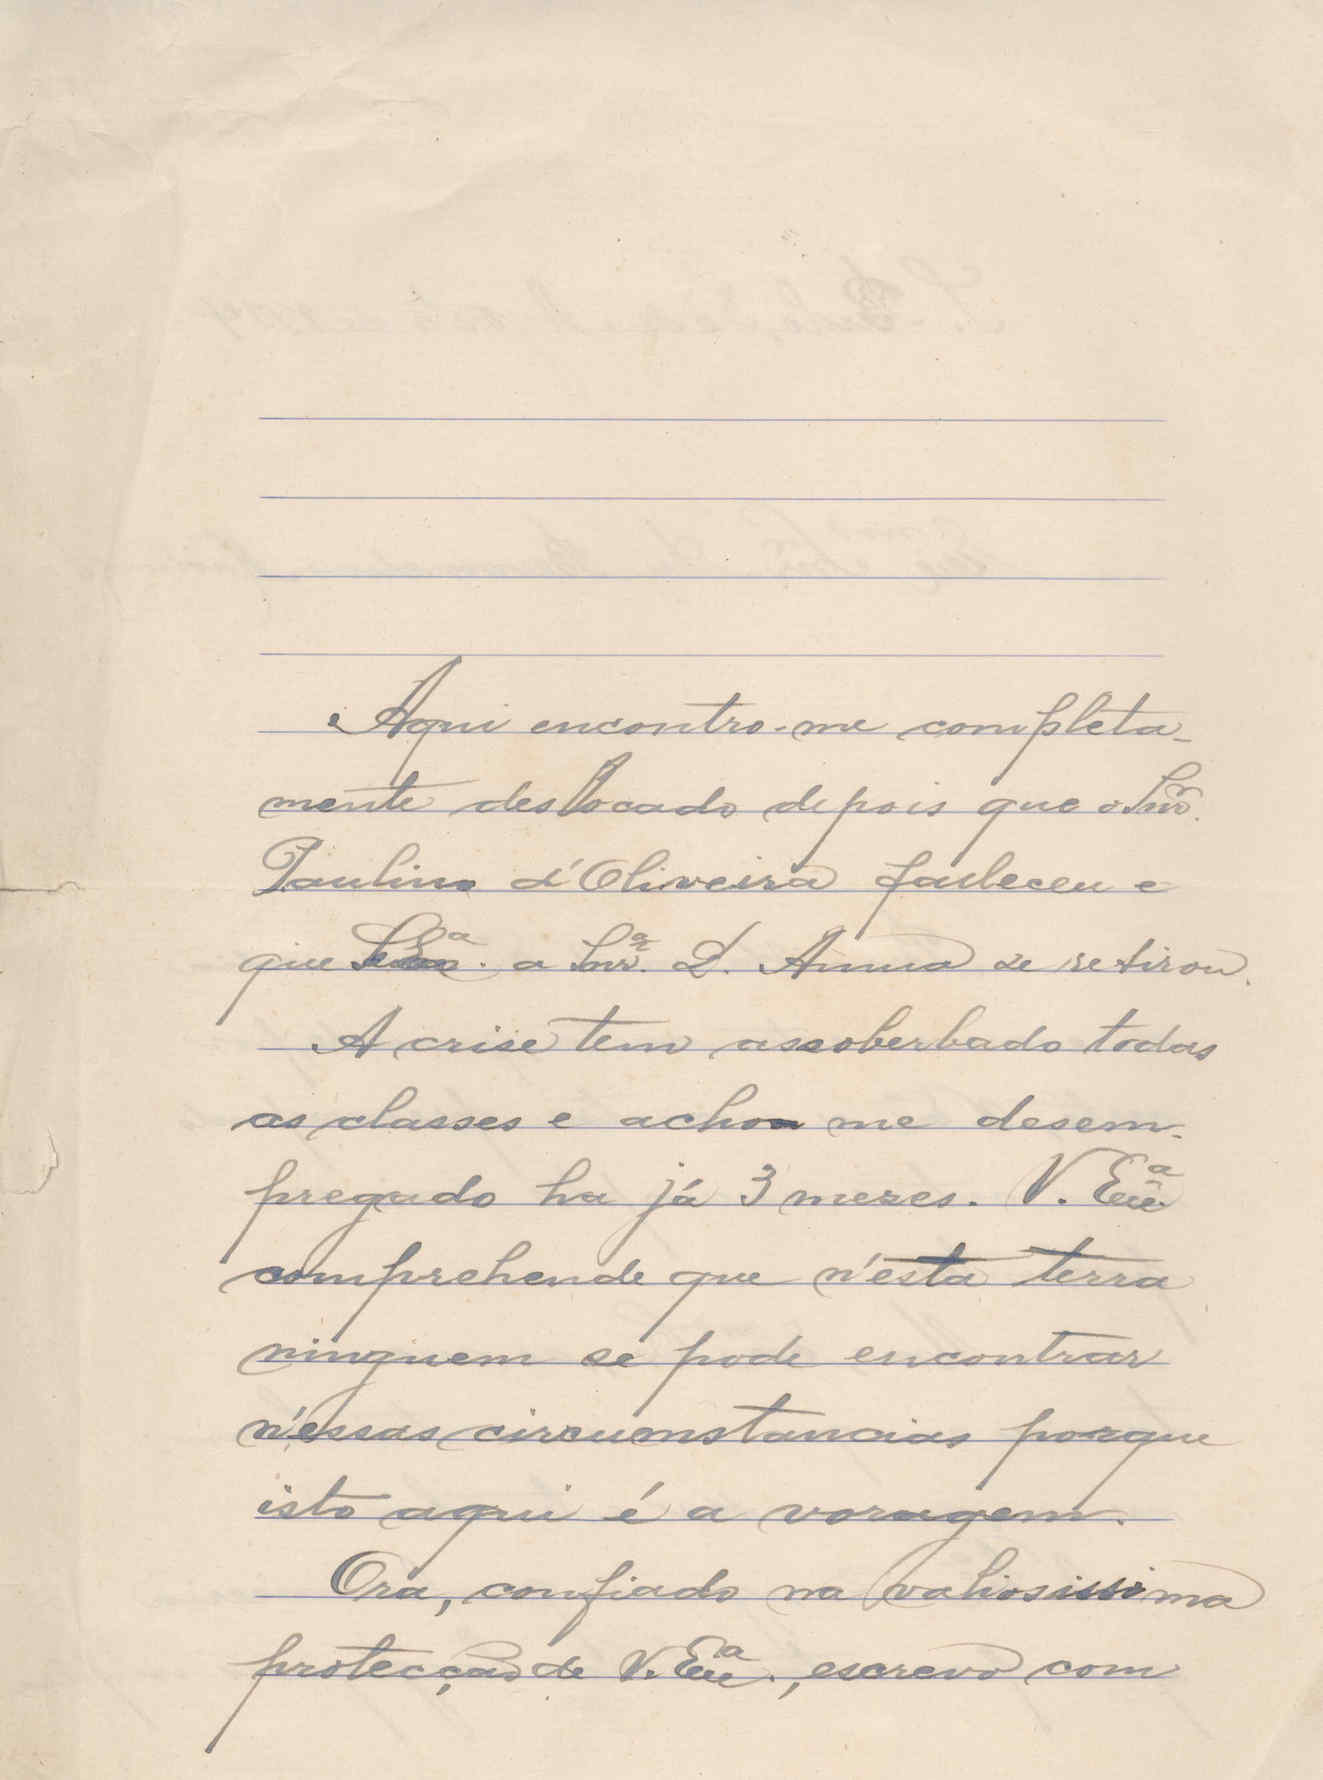 Aqui encontro-me completa-
mente deslocado depois que o Snr.
Paulino d'Oliveira falleceu e
que S. Exª. a Snrª. D. Anna se retirou.
A crise tem assoberbado todas
as classes e acho me desem-
pregado ha já 3 mezes. V. Exª
comprehende que n'esta terra
ninguem se pode encontrar
n'essas circumstancias porque
isto aqui é a voragem.
Ora, confiado na valiosissima
protecção de V. Exª., escrevo com